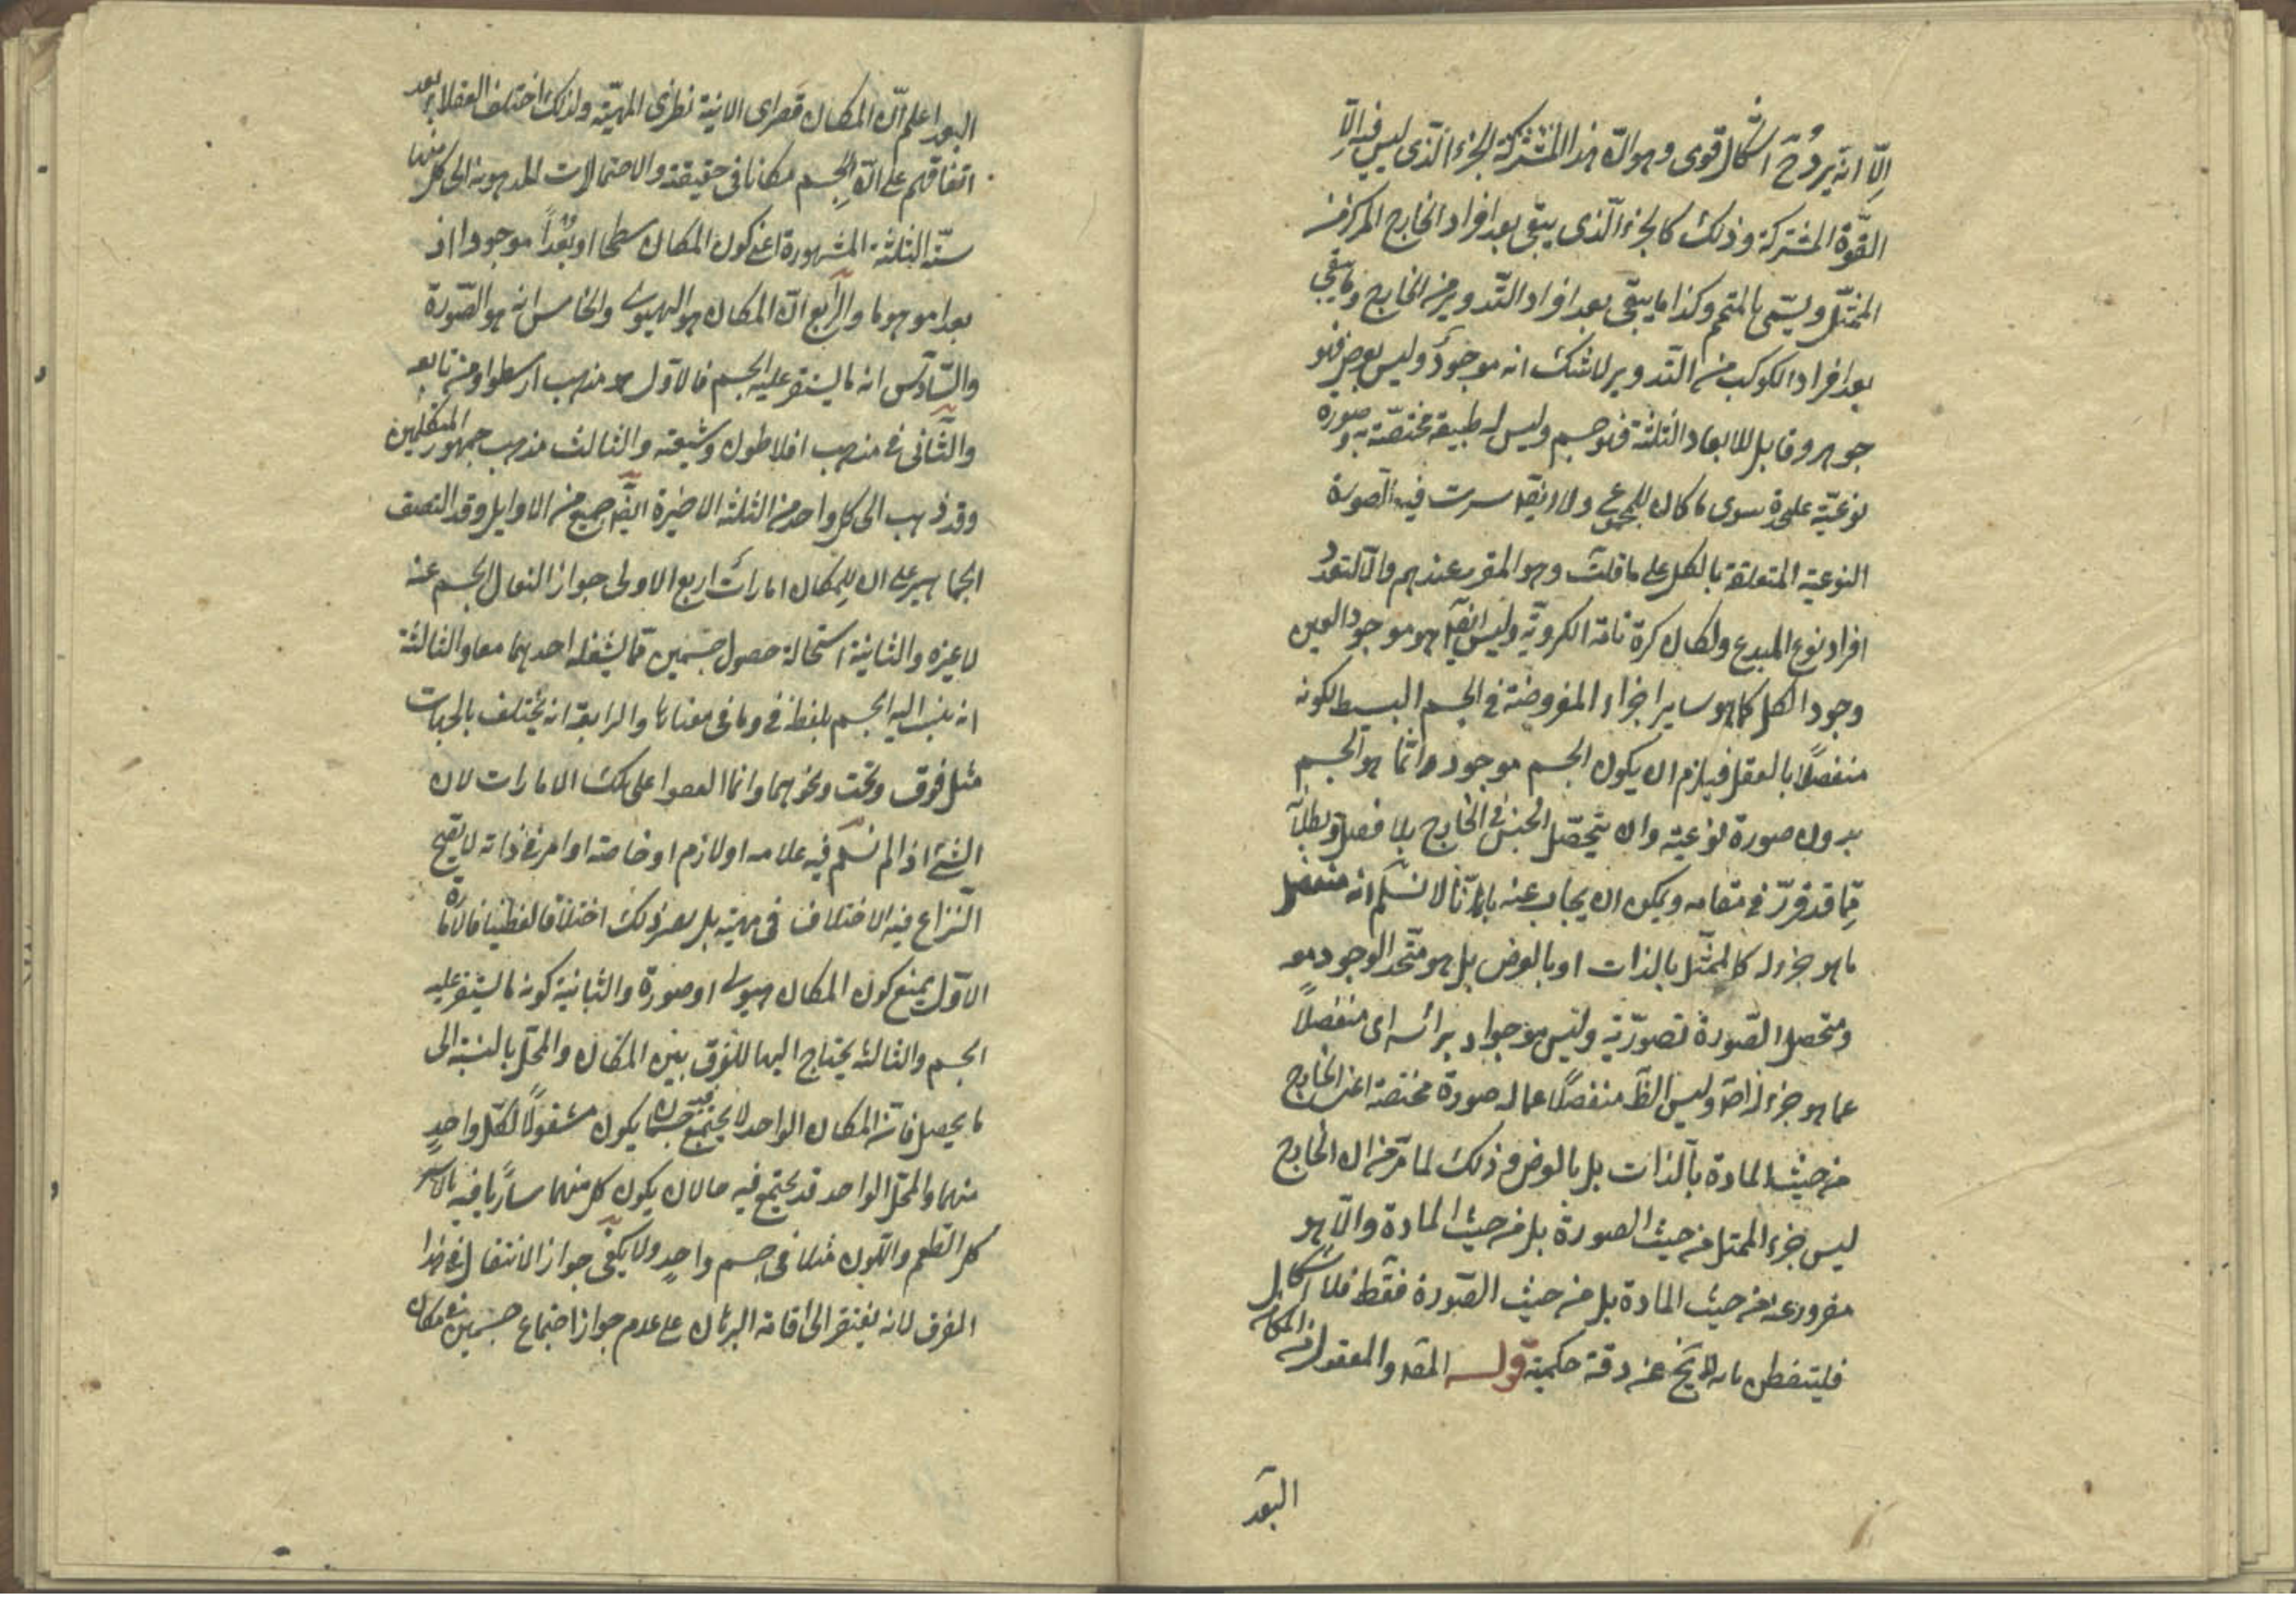 الّا انه يرد ح اشكال قوى وهو انّ هذا المشتركة الجزء الّذى ليس فيه الّا
القوّة المشتركة وذلك كالجزء الّذى يبقى بعد افراد الخارج المركز من
الممثّل ويسمّى بالمتمم وكذا ما يبقى بعد افراد التّدوير من الخارج وما بقى
بعد افراد الكوكب من التدوير لا شك انه موجود وليس بعرض فهو
جوهر وقابل للابعاد الثلثة فهو جسم وليس له طبيعة مختصّة به وصورة
نوعيّة علىحدة سوى ما كان للمجموع ولا ايضا سرت فيه الصورة
النوعية المتعلقة بالكل على ما قلت وهو المقرر عندهم والّا لتعدد
افراد نوع المبدع ولكان كرة تامة الكروية وليس ايضا هو موجود العين
وجود الكل كما هو ساير اجزاء المفروضة فى الجسم البسيط لكونه
منفصلًا بالعقل فيلزم ان يكون الجسم موجود وانّما هو الجسم
بدون صورة نوعية وان يتحصّل الجنس فى الخارج بلا فصل وبطلا
ممّا قد قرّر فى مقامه ويمكن ان يجاب عنه بانّا لا نسلّم انه منفصل
ما هو جزء له كالممثّل بالذات او بالعرض بل هو متّحد الوجود مع
ومتحصل الصّورة بصورته وليس موجودا برأسه اى منفصلًا
عما هو جزء له اصلا وليس ايضا منفصلًا عما له صورة مختصة اعنى الخارج
من حيث المادة بالذات بل بالعرض وذلك لما مرّ من ان الخارج
ليس جزء الممثل من حيث الصورة بل من حيث المادة والّا هو
مفروز عنه من حيث المادة بل من حيث الصّورة فقط فلا اشكال
فليتفطن فانه لا يخ عن دقة حكمية قوله المقد والمعقول من المكان
البعد
البعد اعلم انّ المكان قصرى الانية نظرى المهيّة ولذلك اختلف العقلاء بعد
اتفاقهم على انّ للجسم مكانا فى حقيقته والاحتمالات المذهوبة الى كل منها
ستّة الثلثة المشهورة اعنى كون المكان سطحا او بُعدًا موجودا او
بعدا موهوما والرّابع انّ المكان هو الهيولى والخامس انه هو الصّورة
والسّادس انه ما يستقر عليه الجسم فالاول مذهب ارسطو ومن تابعه
والثّانى مذهب افلاطون وشيعته والثالث مذهب جمهور المتكلمين
وقد ذهب الى كل واحد من الثلثة الاخيرة ايضا جمع من الاوايل وقد اتفقت
الجماهير على ان للمكان امارات اربع الاولى جواز انتقال الجسم عنه
لا غيره والثانية استحالة حصول جسمين فما يشغله احدهما معا والثالثة
انه ينسب اليه الجسم بلفظ فى وما فى معناها والرابعة انه يختلف بالجهات
مثل فوق وتحت ونحوهما وانما اتفقوا على تلك الامارات لان
الشئ اذا لم نسلّم فيه علامه او لازم او خاصة او امر فى ذاته لا يصح
النزاع فيه الاختلاف فى مهيته بل يصير ذلك اختلافا لفظيا فالامارة
الاوّل يمنع كون المكان هيولى او صورة والثانية كونه ما يستقر عليه
الجسم والثالثة يحتاج اليها للفرق بين المكان والمحلّ بالنسبة الى
ما يحصل فانّ المكان الواحد لا يجتمع فيه جسمان يكون مشغولًا لكل واحدٍ
منهما والمحلّ الواحد قد يجتمع فيه حالان يكون كل منهما ساريًا فيه بالاسر
كالطعم واللون مثلا فى جسم واحدٍ ولا يكفى جواز الانتقال فى هذا
الفرق لانه يفتقر الى اقامة البرهان على عدم جواز اجتماع جسمين فى مكان